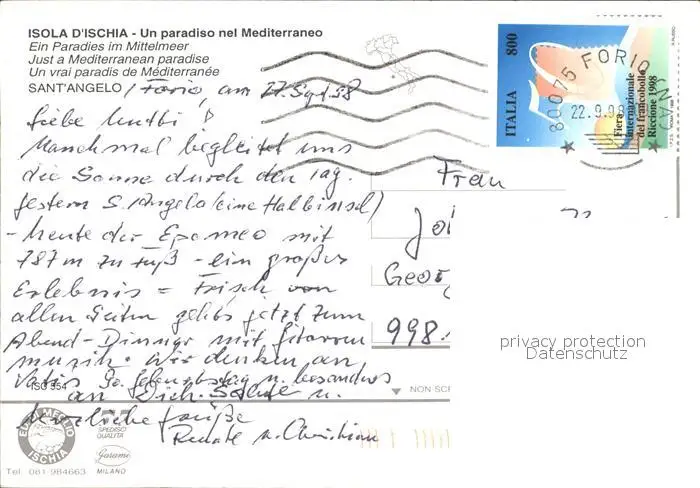 ISOLA D'ISCHIA - Un paradiso nel Mediterraneo
Ein Paradies im Mittelmeer
Just a Mediterranean paradise
Un vrai paradis de Méditerranée
SANT'ANGELO / Forio, am
Liebe Mutti!
Manchmal begleitet uns
die Sonne durch den Tag.
gestern S. Angelo (eine Halbinsel)
- heute der Epomeo mit
787 m zu Fuß - ein großes
Erlebnis = Frisch von
allen Seiten gehts jetzt zum
Abend-Dinner mit Gitarren
musik. Wir denken an
Vatis Geburtstag u. besonders
an Dich. Solche u.
herzliche Grüße
Renate u. Christian
ISO 354
EPOMEO
ISCHIA
SPEDISO
QUALITA'
Garami
MILANO
Tel. 081-984663
ITALIA 800
Fiera
internazionale
del francobollo
Riccione 1998
80075 FORIO (NA)
22.9.98
Frau
Geor
998
NON SC
privacy protection
Datenschutz